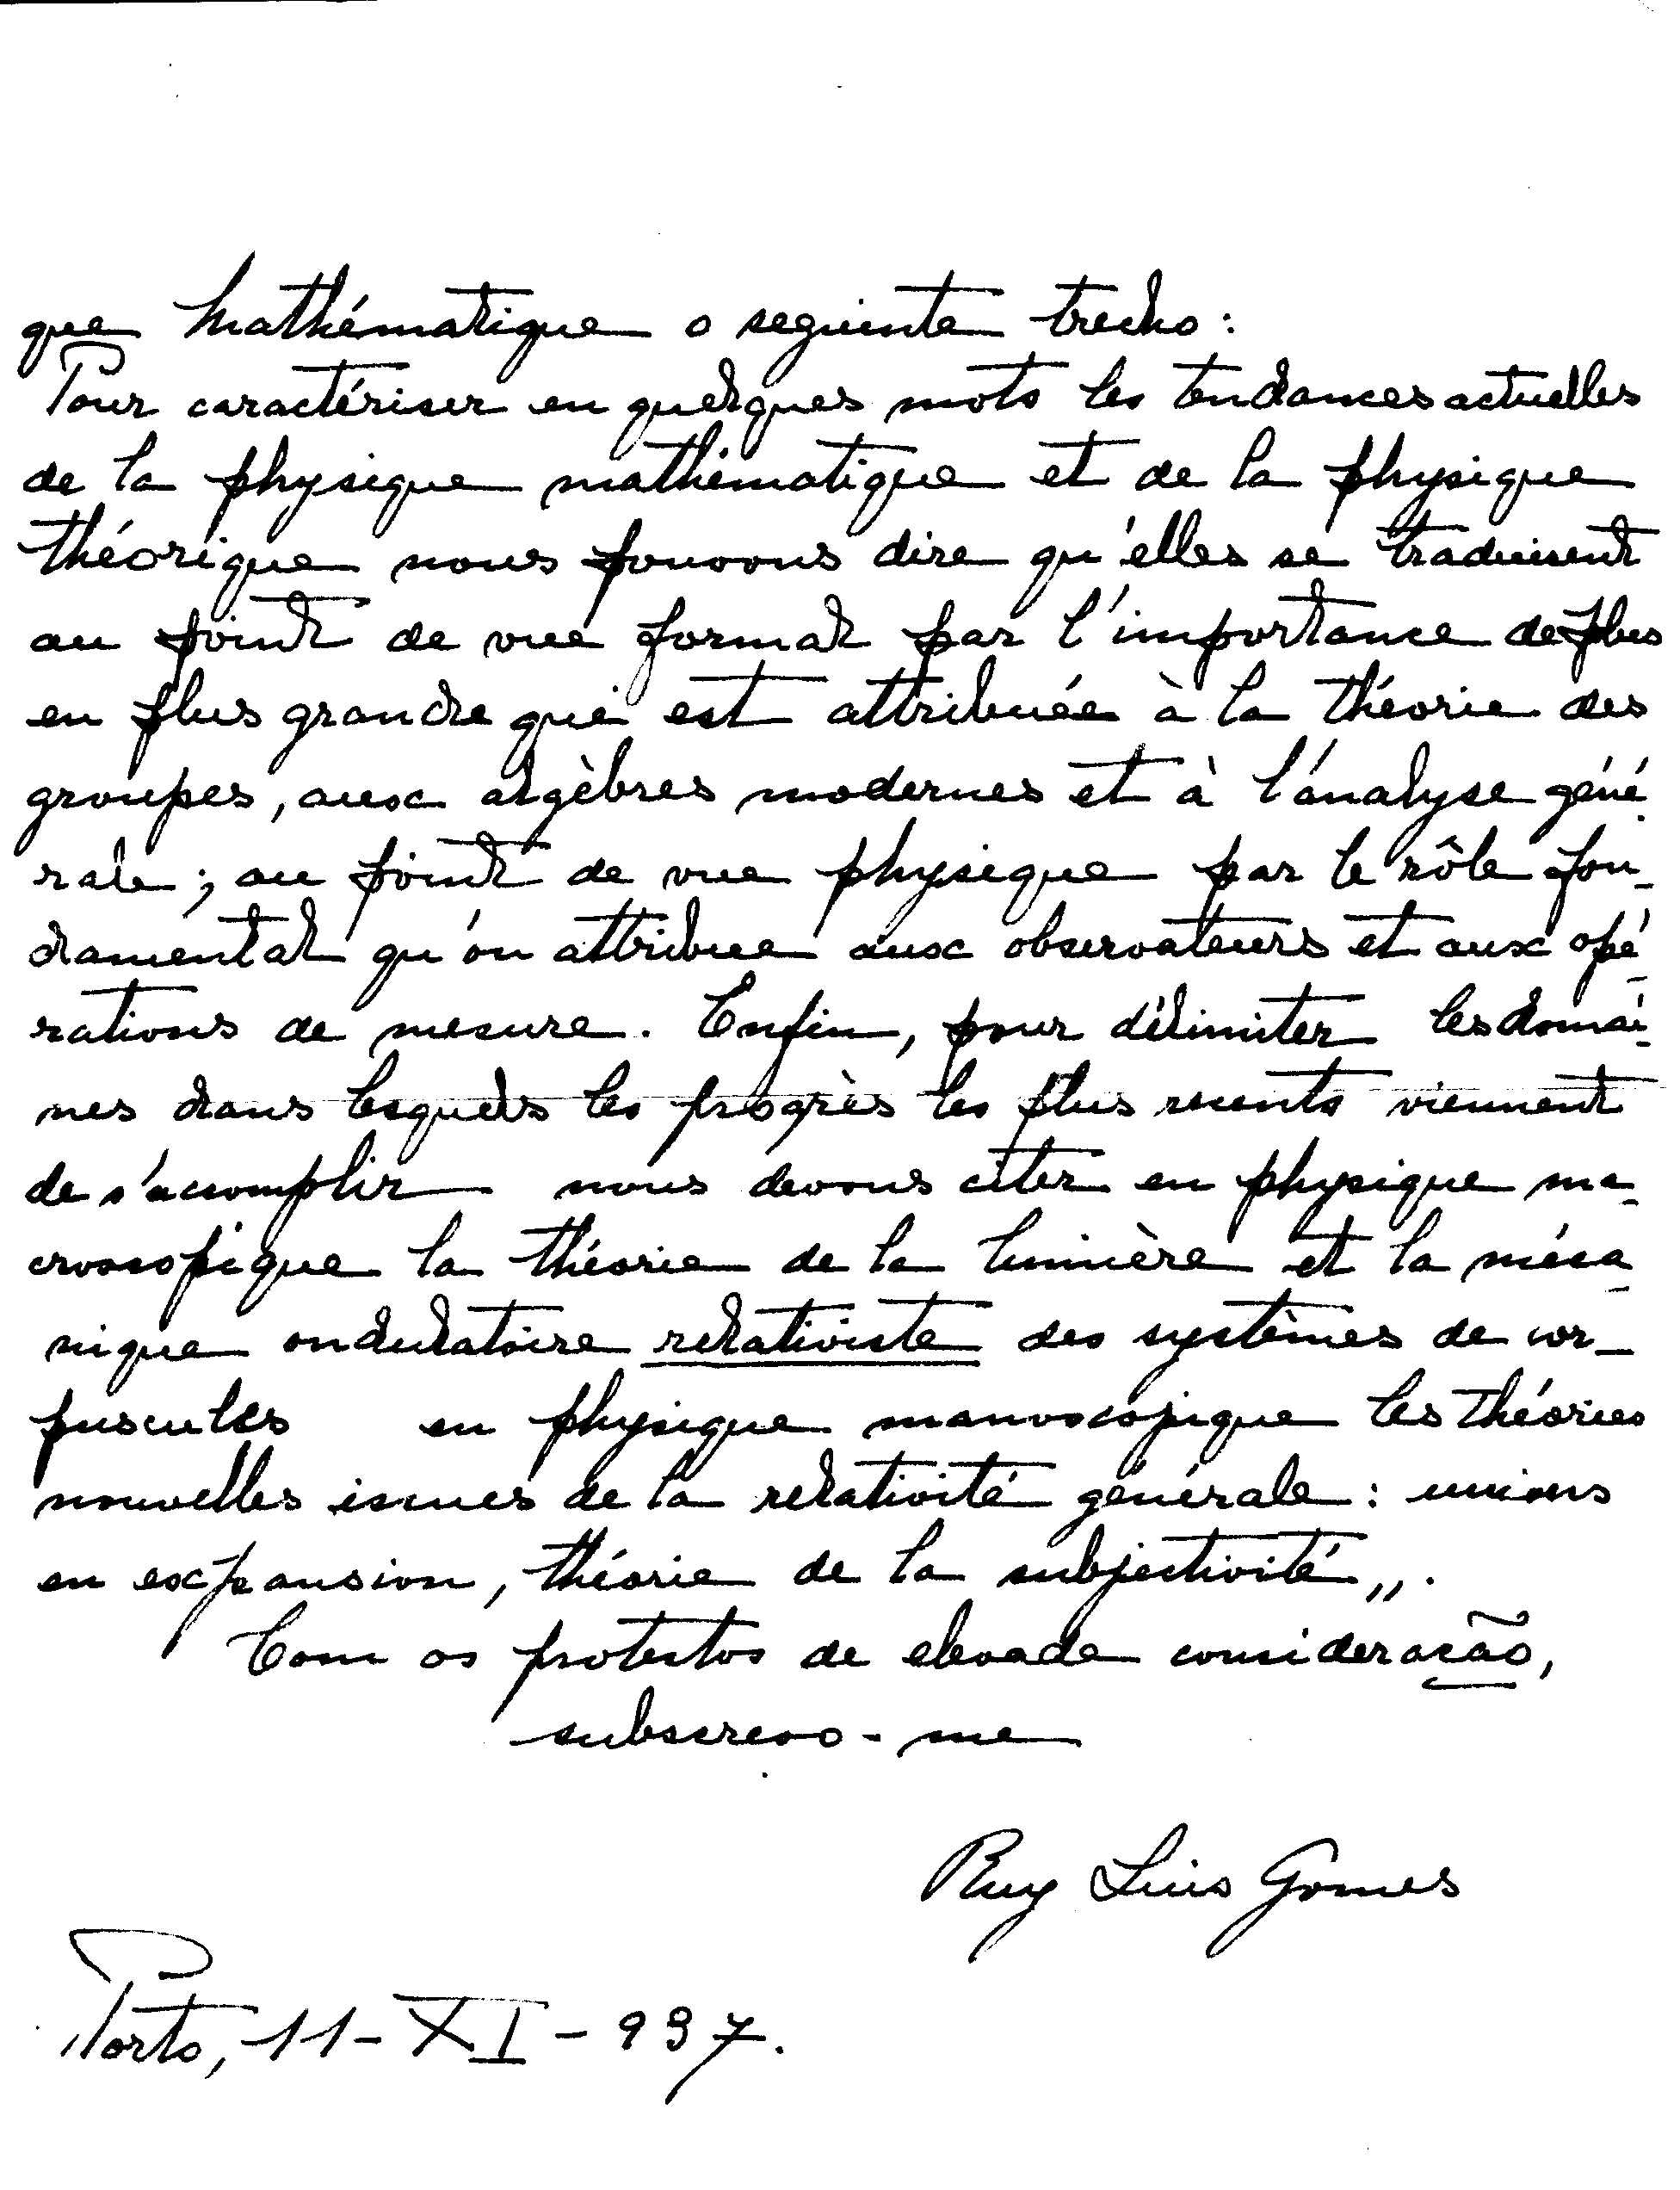 que Mathématique o seguinte trecho:
Pour caractériser en quelques mots les tendances actuelles
de la physique mathématique et de la physique
théorique nous pouvons dire qu'elles se traduisent
au point de vue formal par l'importance de plus
en plus grande qui est attribuée à la théorie des
groupes, aux algèbres modernes et à l'analyse géné-
rale; au point de vue physique par le rôle fon-
damental qu'on attribue aux observateurs et aux opé-
rations de mesure. Enfin, pour délimiter les domai-
nes dans lesquels les progrès les plus recents viennent
de s'accomplir nous devons citer en physique ma-
croscopique la théorie de la lumière et la méca-
nique ondulatoire relativiste des systèmes de cor-
puscules en physique macroscopique les théories
nouvelles issues de la relativité générale: univers
en expansion, théorie de la subjectivité".
Com os protestos de elevada consideração,
subscrevo-me
Ruy Luis Gomes
Porto, 11-XI-937.